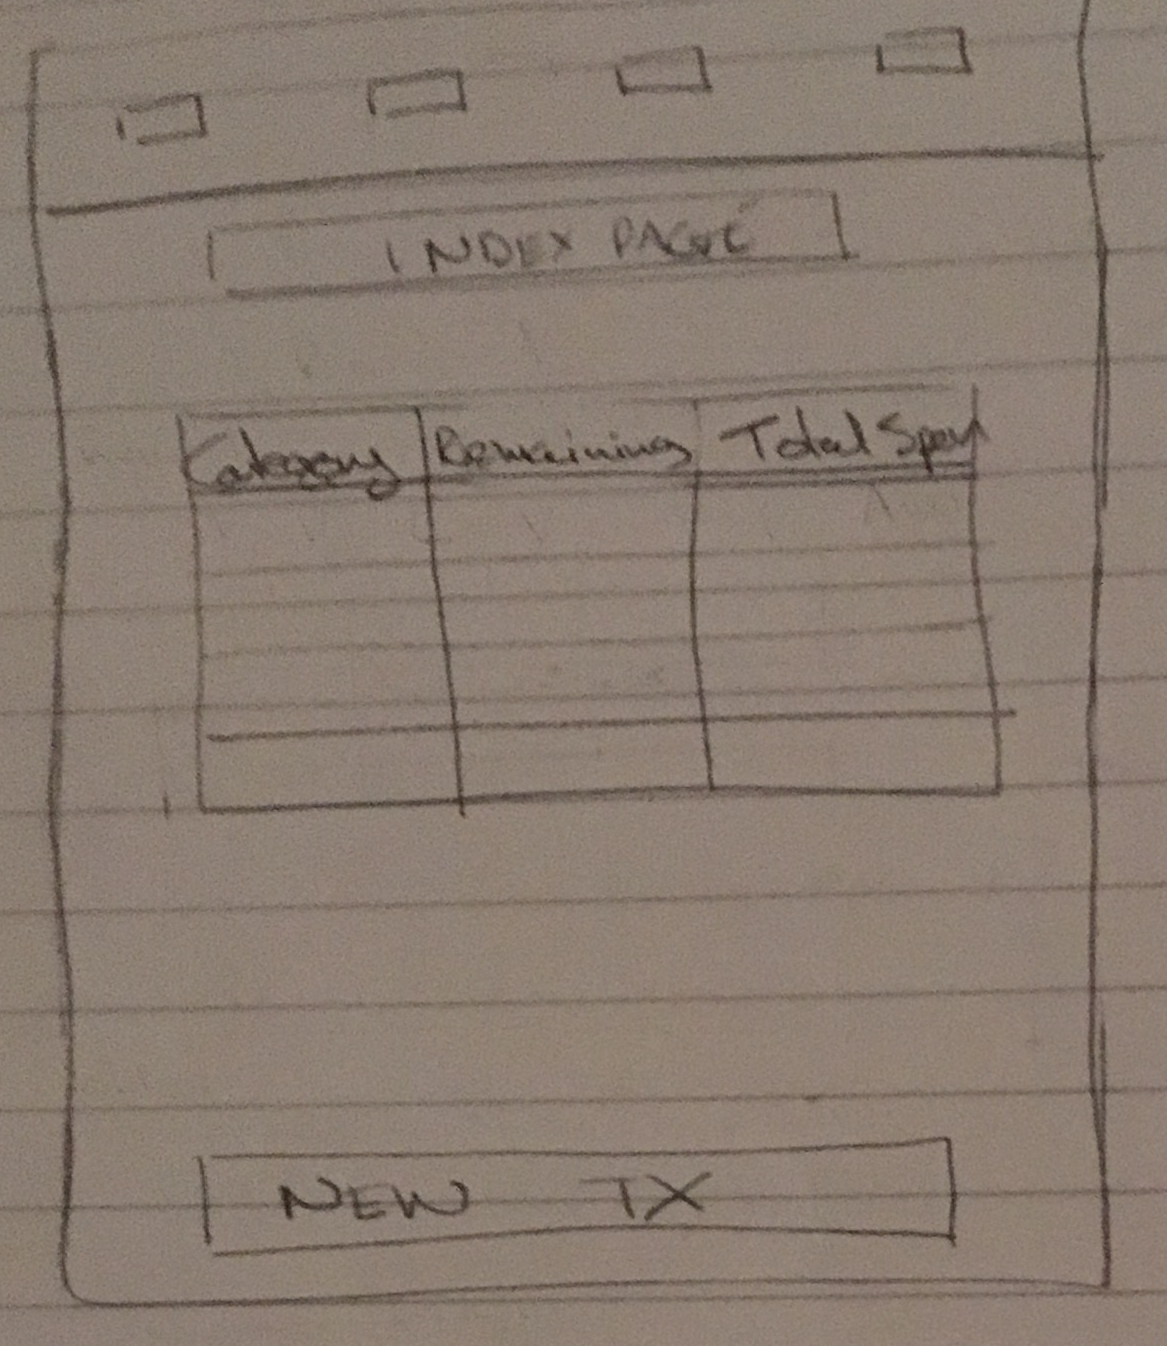 INDEX PAGE
Category Remaining Total Spent
NEW TX